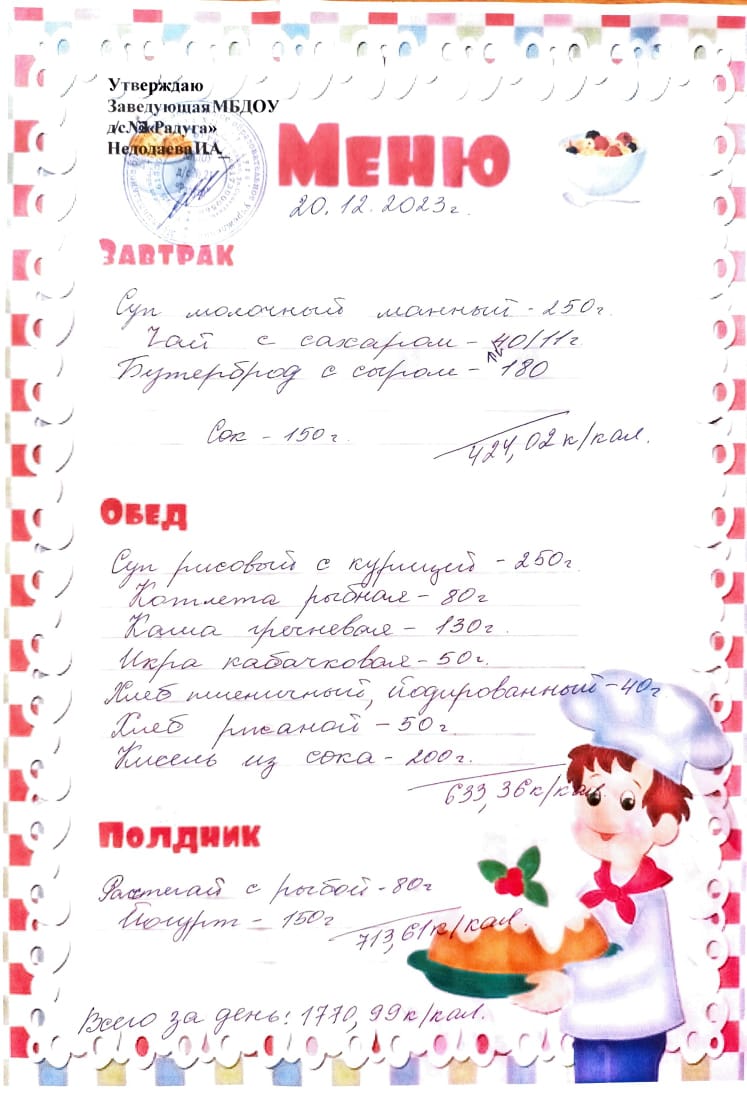 Утверждаю
Заведующая МБДОУ
д/с №3 «Радуга»
Недодаева И.А.
Меню
20.12.2023г.
Завтрак
Суп молочный манный - 250г.
Чай с сахаром - 40/11г.
Бутерброд с сыром - 180
Сок - 150г.
424,02 к/кал.
Обед
Суп рисовый с курицей - 250г.
Котлета рыбная - 80г
Каша гречневая - 130г.
Икра кабачковая - 50г.
Хлеб пшеничный, йодированный - 40г
Хлеб ржаной - 50г
Кисель из сока - 200г.
633,36 к/кал.
Полдник
Расстегай с рыбой - 80г
Йогурт - 150г
713,61 к/кал.
Всего за день: 1770,99 к/кал.